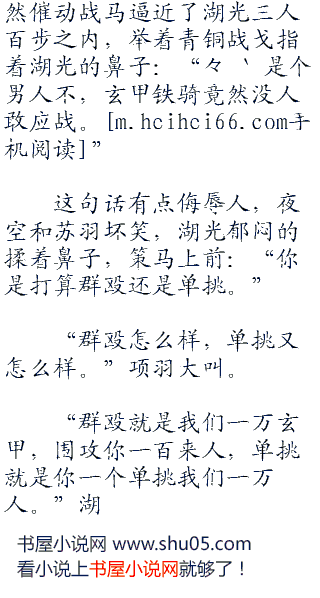 然催动战马逼近了湖光三人
百步之内，举着青铜战戈指
着湖光的鼻子：“々丶是个
男人不，玄甲铁骑竟然没人
敢应战。[m.hcihci66.com手
机阅读]”
这句话有点侮辱人，夜
空和苏羽坏笑，湖光郁闷的
揉着鼻子，策马上前：“你
是打算群殴还是单挑。”
“群殴怎么样，单挑又
怎么样。”项羽大叫。
“群殴就是我们一万玄
甲，围攻你一百来人，单挑
就是你一个单挑我们一万
人。”湖
书屋小说网 www.shu05.com
看小说上书屋小说网就够了！